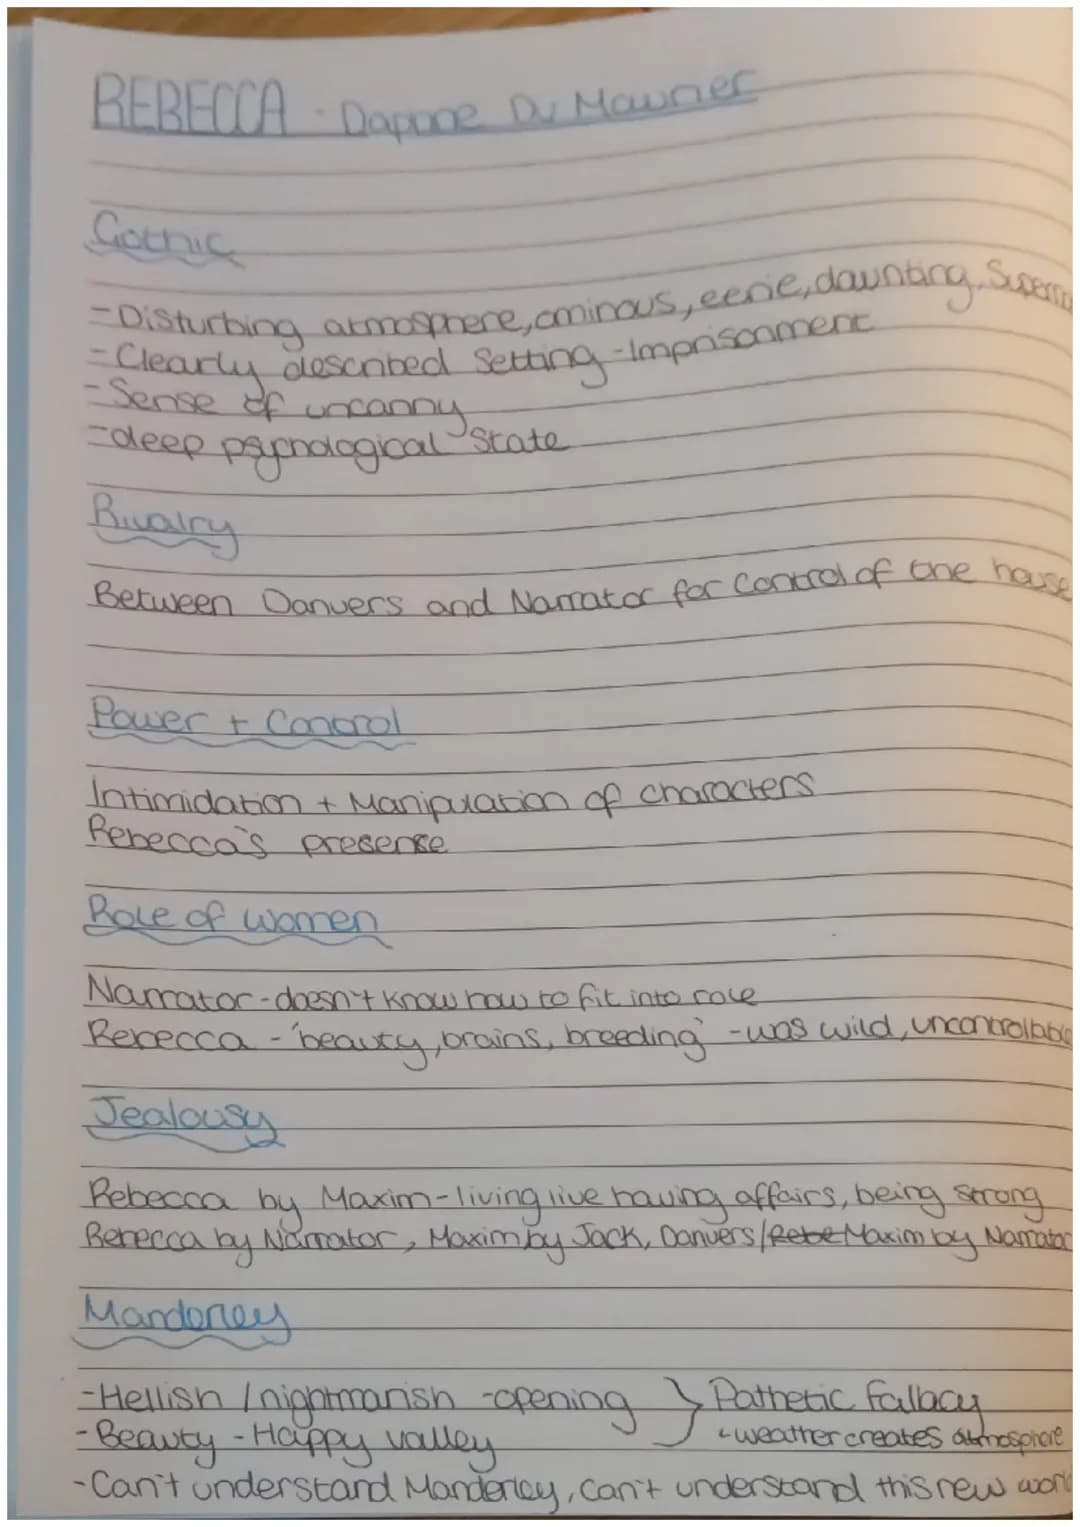 REBECCA - Daphne Du Maurier
Gothic
-Disturbing atmosphere, ominous, eerie, daunting,
-Clearly described Setting - Imprisonment
-Sense of uncanny
-deep psychological State
Rivalry
Between Danvers and Narrator for Control of the house
Power + Control
Intimidation + Manipulation of characters
Rebecca's presense
Role of women
Narrator - doesn't know how to fit into role
Rebecca - 'beauty, brains, breeding' - was wild, uncontrollable
Jealousy
Rebecca by Maxim - living live having affairs, being strong
Rebecca by Narrator, Maxim by Jack, Danvers/Rebe Maxim by Narrator
Manderley
-Hellish / nightmarish - opening } Pathetic Fallacy
-Beauty - Happy valley - weather creates atmosphere
-Can't understand Manderley, can't understand this new